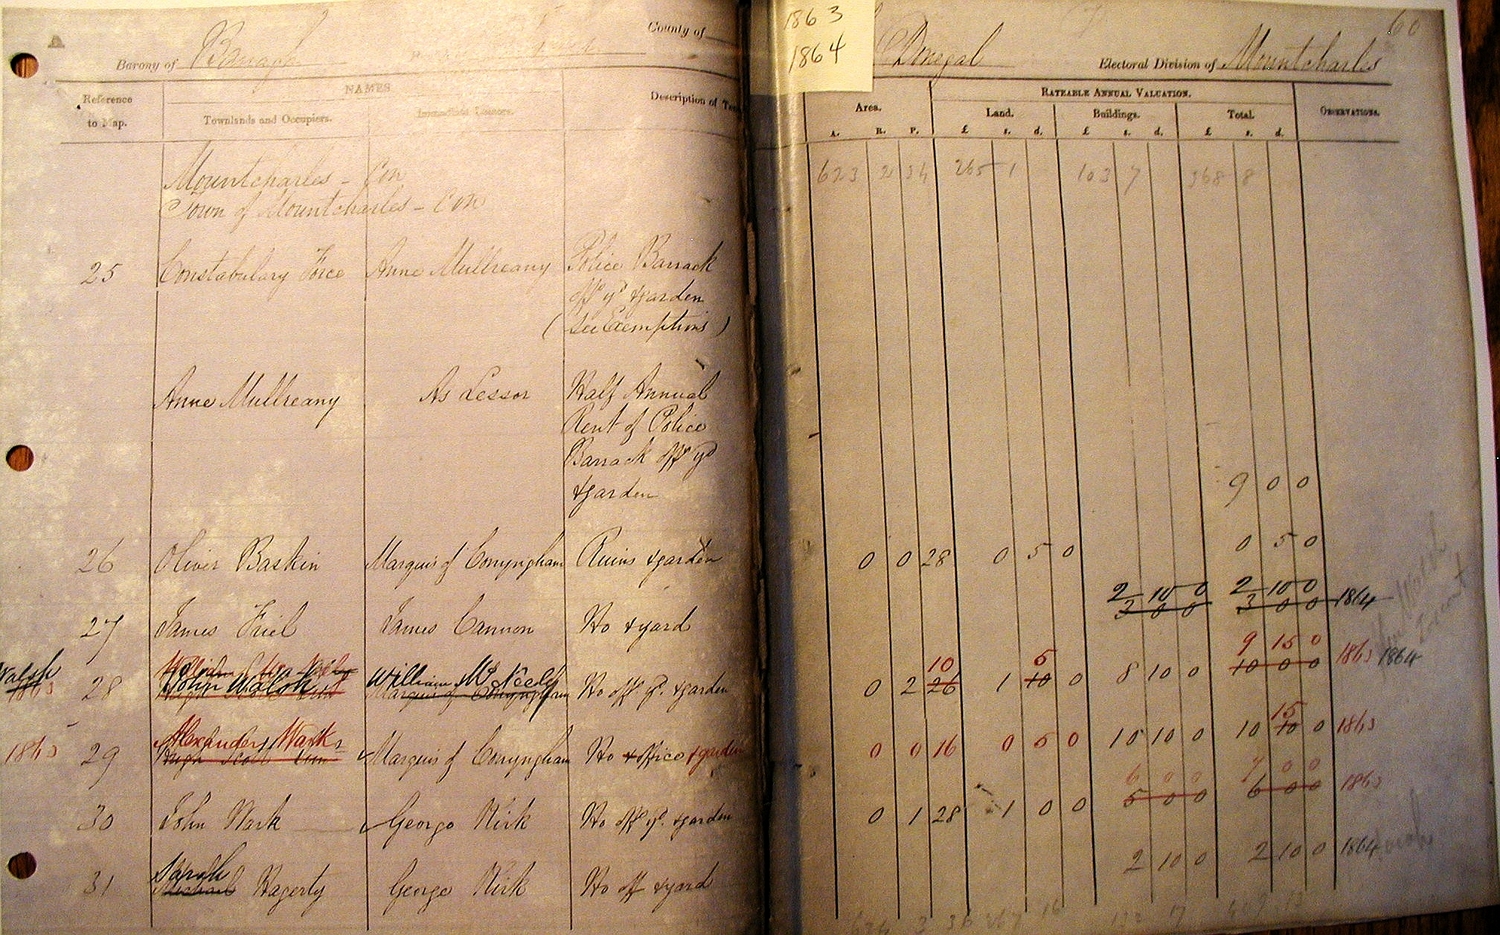 1863
1864
60
County of Donegal
Barony of Banagh
Electoral Division of Mountcharles
Reference to Map.
NAMES
Townlands and Occupiers.
Immediate Lessors.
Description of
Area.
A. R. P.
RATEABLE ANNUAL VALUATION.
Land.
£ s. d.
Buildings.
£ s. d.
Total.
£ s. d.
OBSERVATIONS.
Mountcharles - Con 623 2 34 265 1 103 7 368 8
Town of Mountcharles - Con
25 Constabulary Force Anne Mulreany Police Barrack
offs yd & garden
(See Exemptions)
Anne Mulreany As Lessor Half Annual
Rent of Police
Barrack offs yd
& garden 9 0 0
26 Oliver Baskin Marquis of Conyngham Ruins & garden 0 0 28 0 5 0 0 5 0
2 10 0 2 10 0
27 James Friel James Cannon Ho & yard 3 0 0 3 0 0 1864
10 5 9 15 0 1863 1864
Walsh 1863 28 John Walsh William McNeely Ho offs yd. & garden 0 2 26 1 10 0 8 10 0 10 0 0
Marquis of Conyngham
Alexander Wark 15
1863 29 Marquis of Conyngham Ho & office & garden 0 0 16 0 5 0 10 10 0 10 10 0 1863
6 0 0 7 0 0
30 John Wark George Kirk Ho offs yd. & garden 0 1 28 1 0 0 5 0 0 6 0 0 1863
Sarah
31 Michael Hagerty George Kirk Ho off & yard 2 10 0 2 10 0 1864 Sarah